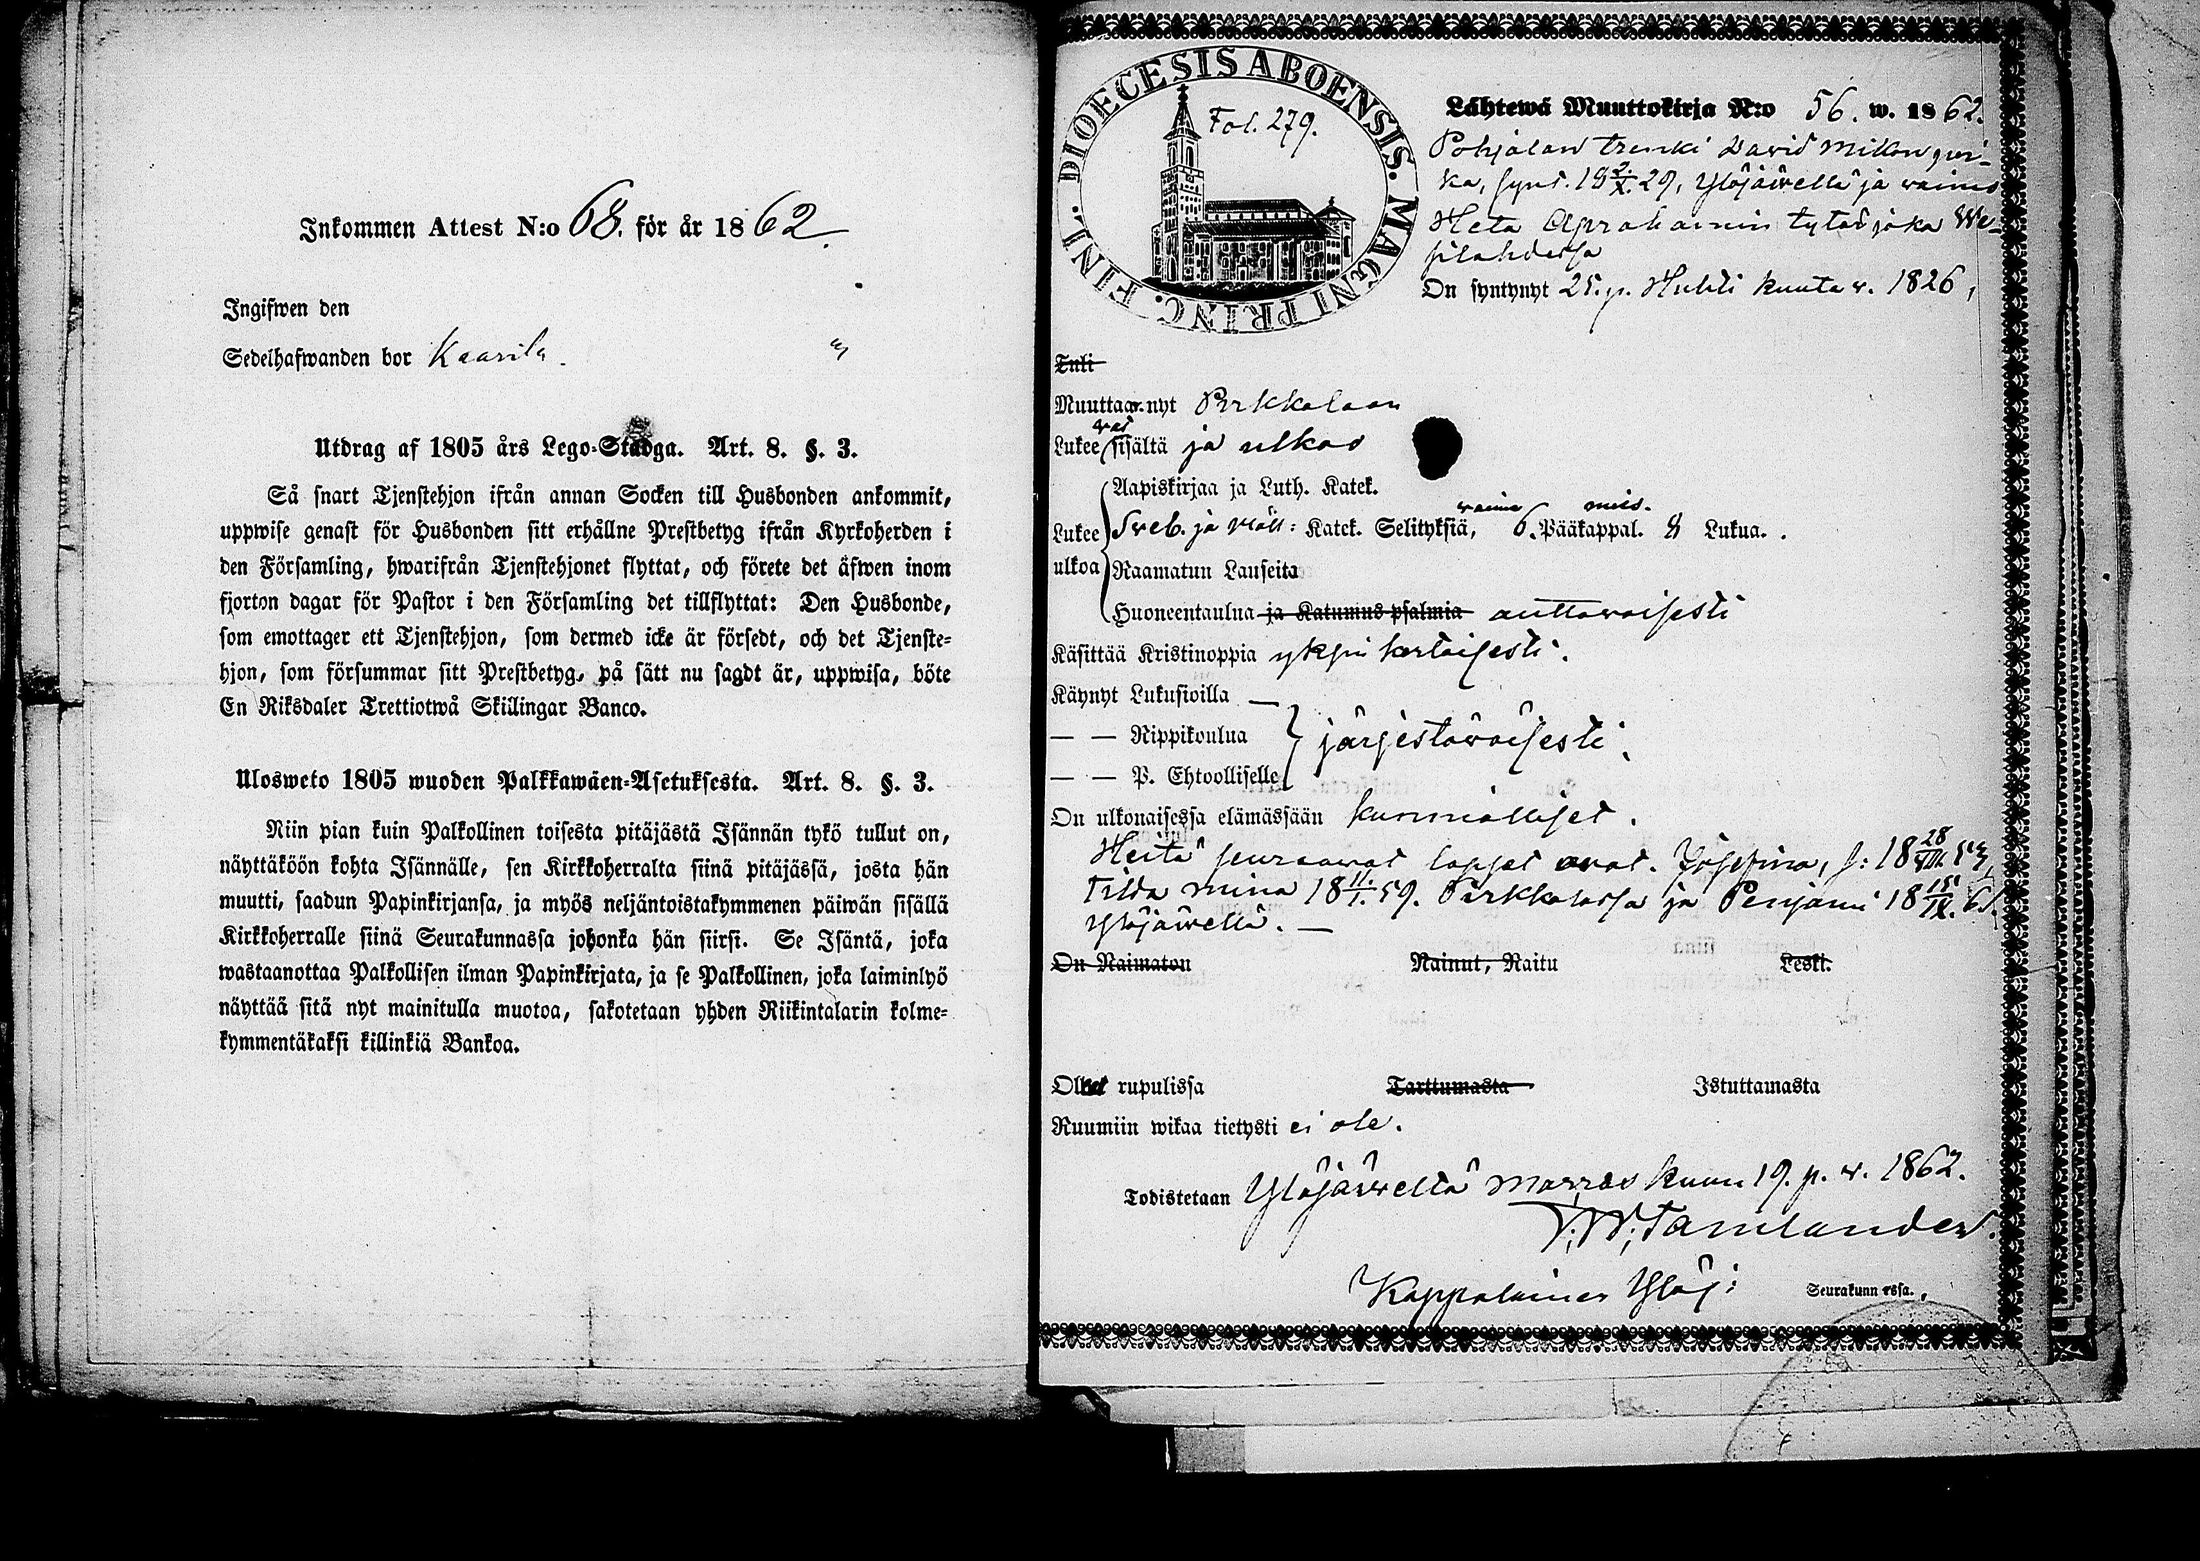 Inkommen Attest N:o 68. för år 1862.
Ingifwen den
Sedelhafwanden bor Kaarila.
Utdrag af 1805 års Lego-Stadga. Art. 8. §. 3.
Så snart Tjenstehjon ifrån annan Socken till Husbonden ankommit,
uppwise genast för Husbonden sitt erhållne Prestbetyg ifrån Kyrkoherden i
den Församling, hwarifrån Tjenstehjonet flyttat, och förete det äfwen inom
fjorton dagar för Pastor i den Församling det tillflyttat: Den Husbonde,
som emottager ett Tjenstehjon, som dermed icke är försedt, och det Tjenste-
hjon, som försummar sitt Prestbetyg, på sätt nu sagdt är, uppwisa, böte
En Riksdaler Trettiotwå Skillingar Banco.
Ulosweto 1805 wuoden Palkkawäen-Asetuksesta. Art. 8. §. 3.
Niin pian kuin Palkollinen toisesta pitäjästä Isännän tykö tullut on,
näyttäköön kohta Isännälle, sen Kirkkoherralta siinä pitäjässä, josta hän
muutti, saadun Papinkirjansa, ja myös neljäntoistakymmenen päiwän sisällä
Kirkkoherralle siinä Seurakunnassa johonka hän siirsi. Se Isäntä, joka
wastaanottaa Palkollisen ilman Papinkirjata, ja se Palkollinen, joka laiminlyö
näyttää sitä nyt mainitulla muotoa, sakotetaan yhden Riikintalarin kolme-
kymmentäkaksi killinkiä Bankoa.
DIOECESIS ABOENSIS. MAGNI PRINC. FINL.
Fol. 279.
Lähtewä Muuttokirja N:o 56. w. 1862.
Pohjalan trenki David Mikon poi-
ka, synt. 18 2/X. 29, Ylöjäwellä ja waimo
Heta Aprahamin tytär joka We-
silahdessa
On syntynyt 25. p. Huhti kuuta w. 1826,
Tuli
Muuttaa nyt Pirkkalaan
Lukee sisältä ja ulkoa
Aapiskirjaa ja Luth. Katek.
Lukee Sveb. ja Katek. Selityksiä, waimo 6. Pääkappal. mies. 8 Lukua.
ulkoa Raamatun Lauseita
Huoneentaulua ja Katumus psalmia auttawaisesti
Käsittää Kristinoppia yksinkertaisesti.
Käynyt Lukusioilla —
— — Rippikoulua järjestäwäisesti.
— — P. Ehtoolliselle
On ulkonaisessa elämässään kunnialliset.
Heitä seuraawat lapset owat. Josefina, s: 18 28/VIII. 53,
Tilda mina 18 11./I. 59. Pirkkalassa ja Penjami 18 15/IX. 61.
Ylöjäwellä. —
On Naimaton Nainut, Naitu Leski.
Olleet rupulissa Tarttumasta Istuttamasta
Ruumiin wikaa tietysti ei ole.
Todistetaan Ylöjärwellä Marras kuun 19. p. w. 1862.
Tamlander.
Kappalainen Ylöj: Seurakunnassa.